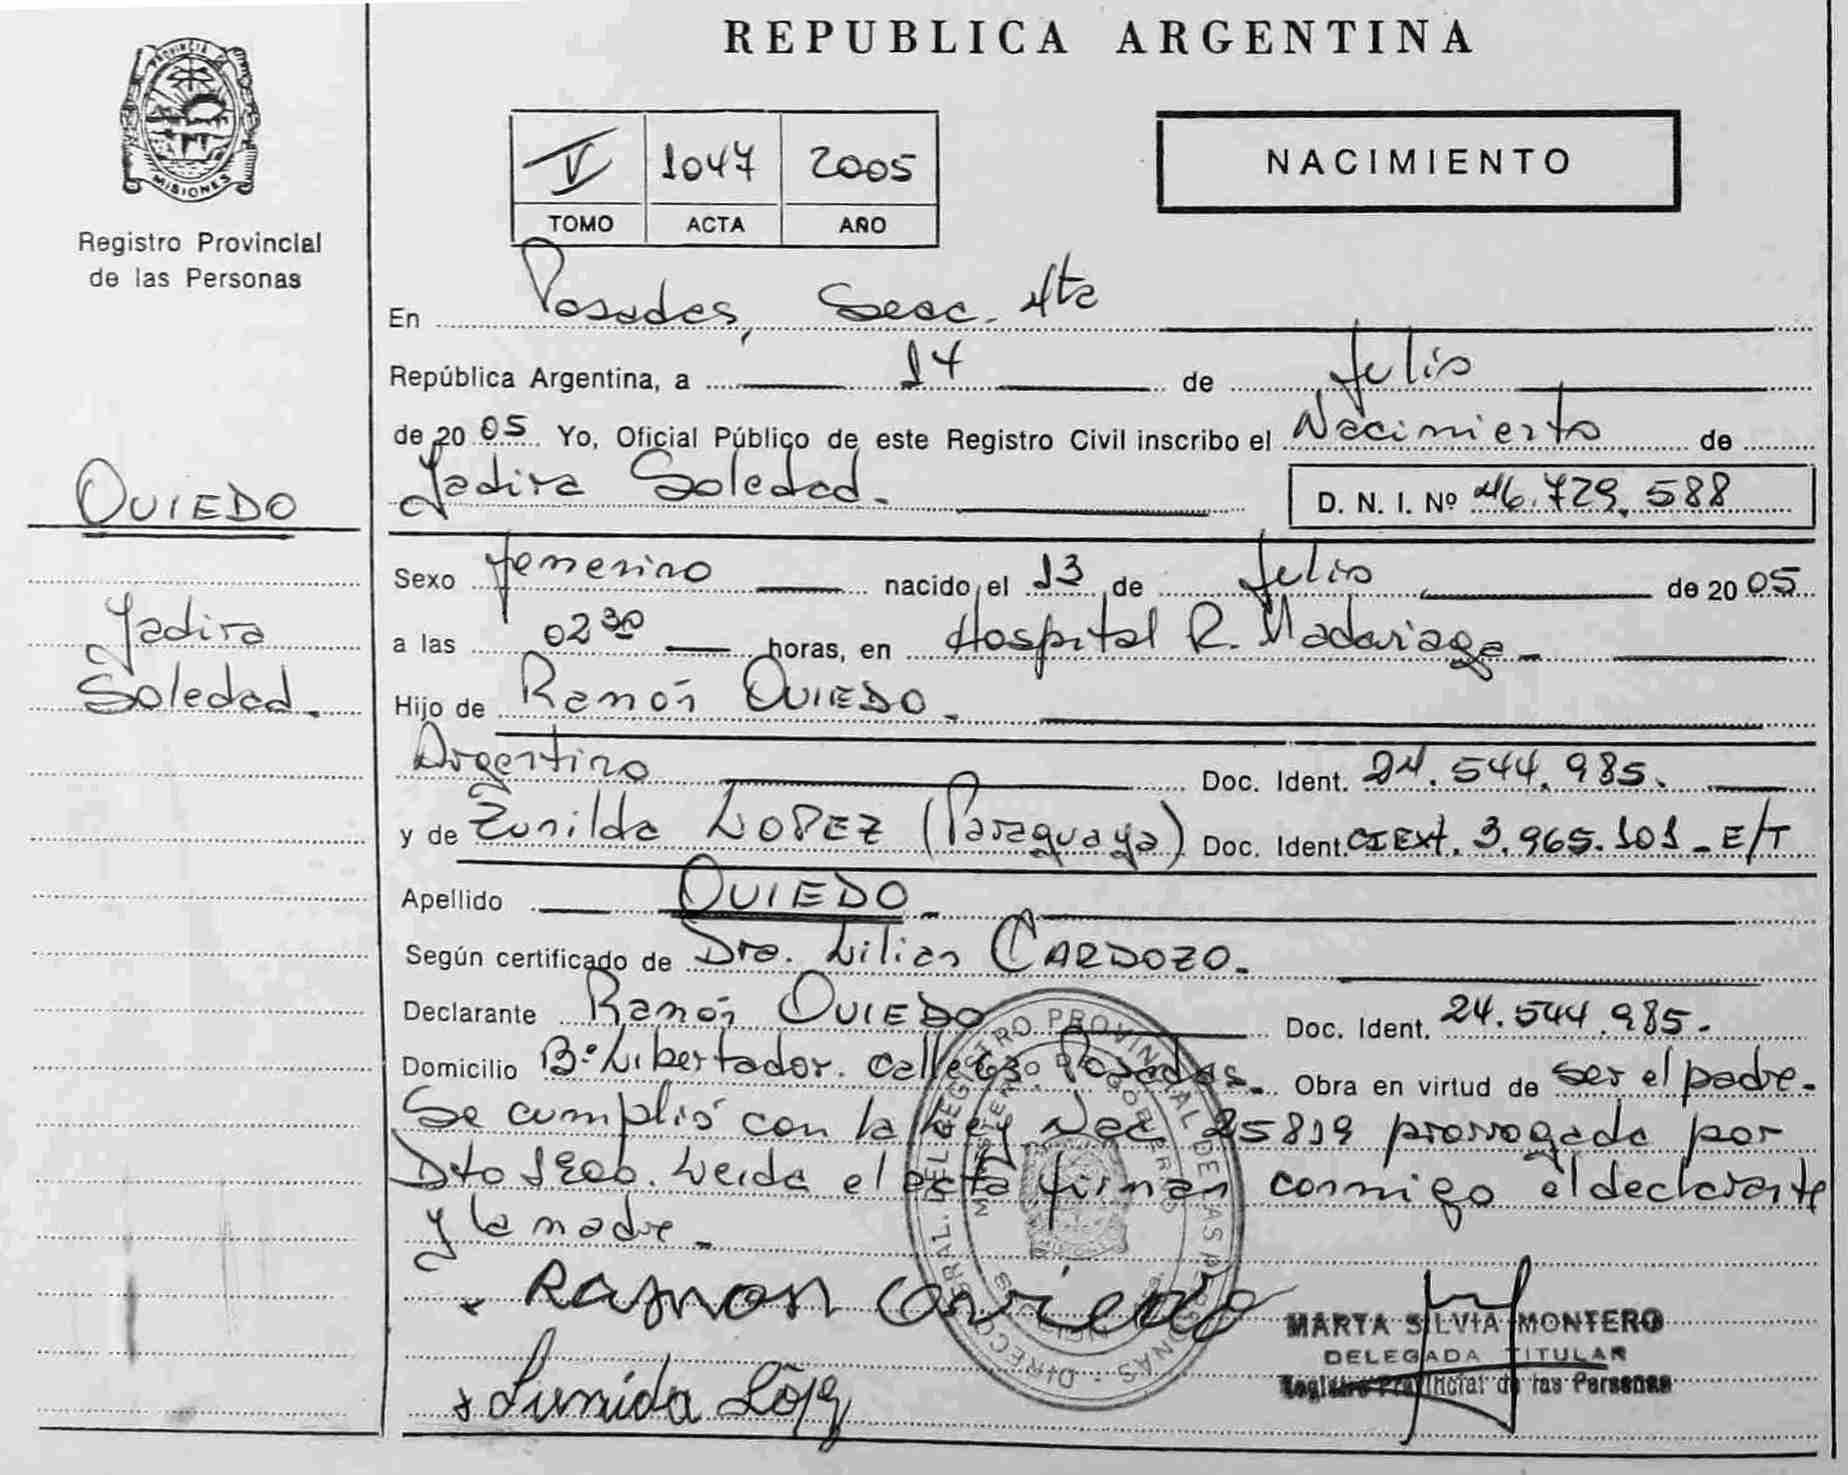 REPUBLICA ARGENTINA
PROVINCIA
MISIONES
Registro Provincial
de las Personas
V 1047 2005
TOMO ACTA AÑO
NACIMIENTO
En Posadas, Secc. 4ta
República Argentina, a 14 de Julio
de 2005 Yo, Oficial Público de este Registro Civil inscribo el Nacimiento de
Yadira Soledad. D. N. I. Nº 46.729.588
OVIEDO
Yadira
Soledad.
Sexo femenino nacido el 13 de Julio de 2005
a las 02 30 horas, en Hospital R. Madariaga
Hijo de Ramón OVIEDO.
Argentino Doc. Ident. 24.544.985.
y de Zunilda LOPEZ (Paraguaya) Doc. Ident. CIExt. 3.965.101 - E/T
Apellido OVIEDO
Según certificado de Dra. Lilian CARDOZO.
Declarante Ramón OVIEDO Doc. Ident. 24.544.985.
Domicilio Bº Libertador. calle 63. Posadas. Obra en virtud de ser el padre.
Se cumplió con la Ley Nac 25819 prorrogada por
Dto 1900. Leida el acta firman conmigo el declarante
y la madre.
x Ramon Oviedo
x Sunida Lópz
MARTA SILVIA MONTERO
DELEGADA TITULAR
Registro Provincial de las Personas
DIRECCION GRAL. DEL REGISTRO PROVINCIAL DE LAS PERSONAS
MINISTERIO DE GOBIERNO